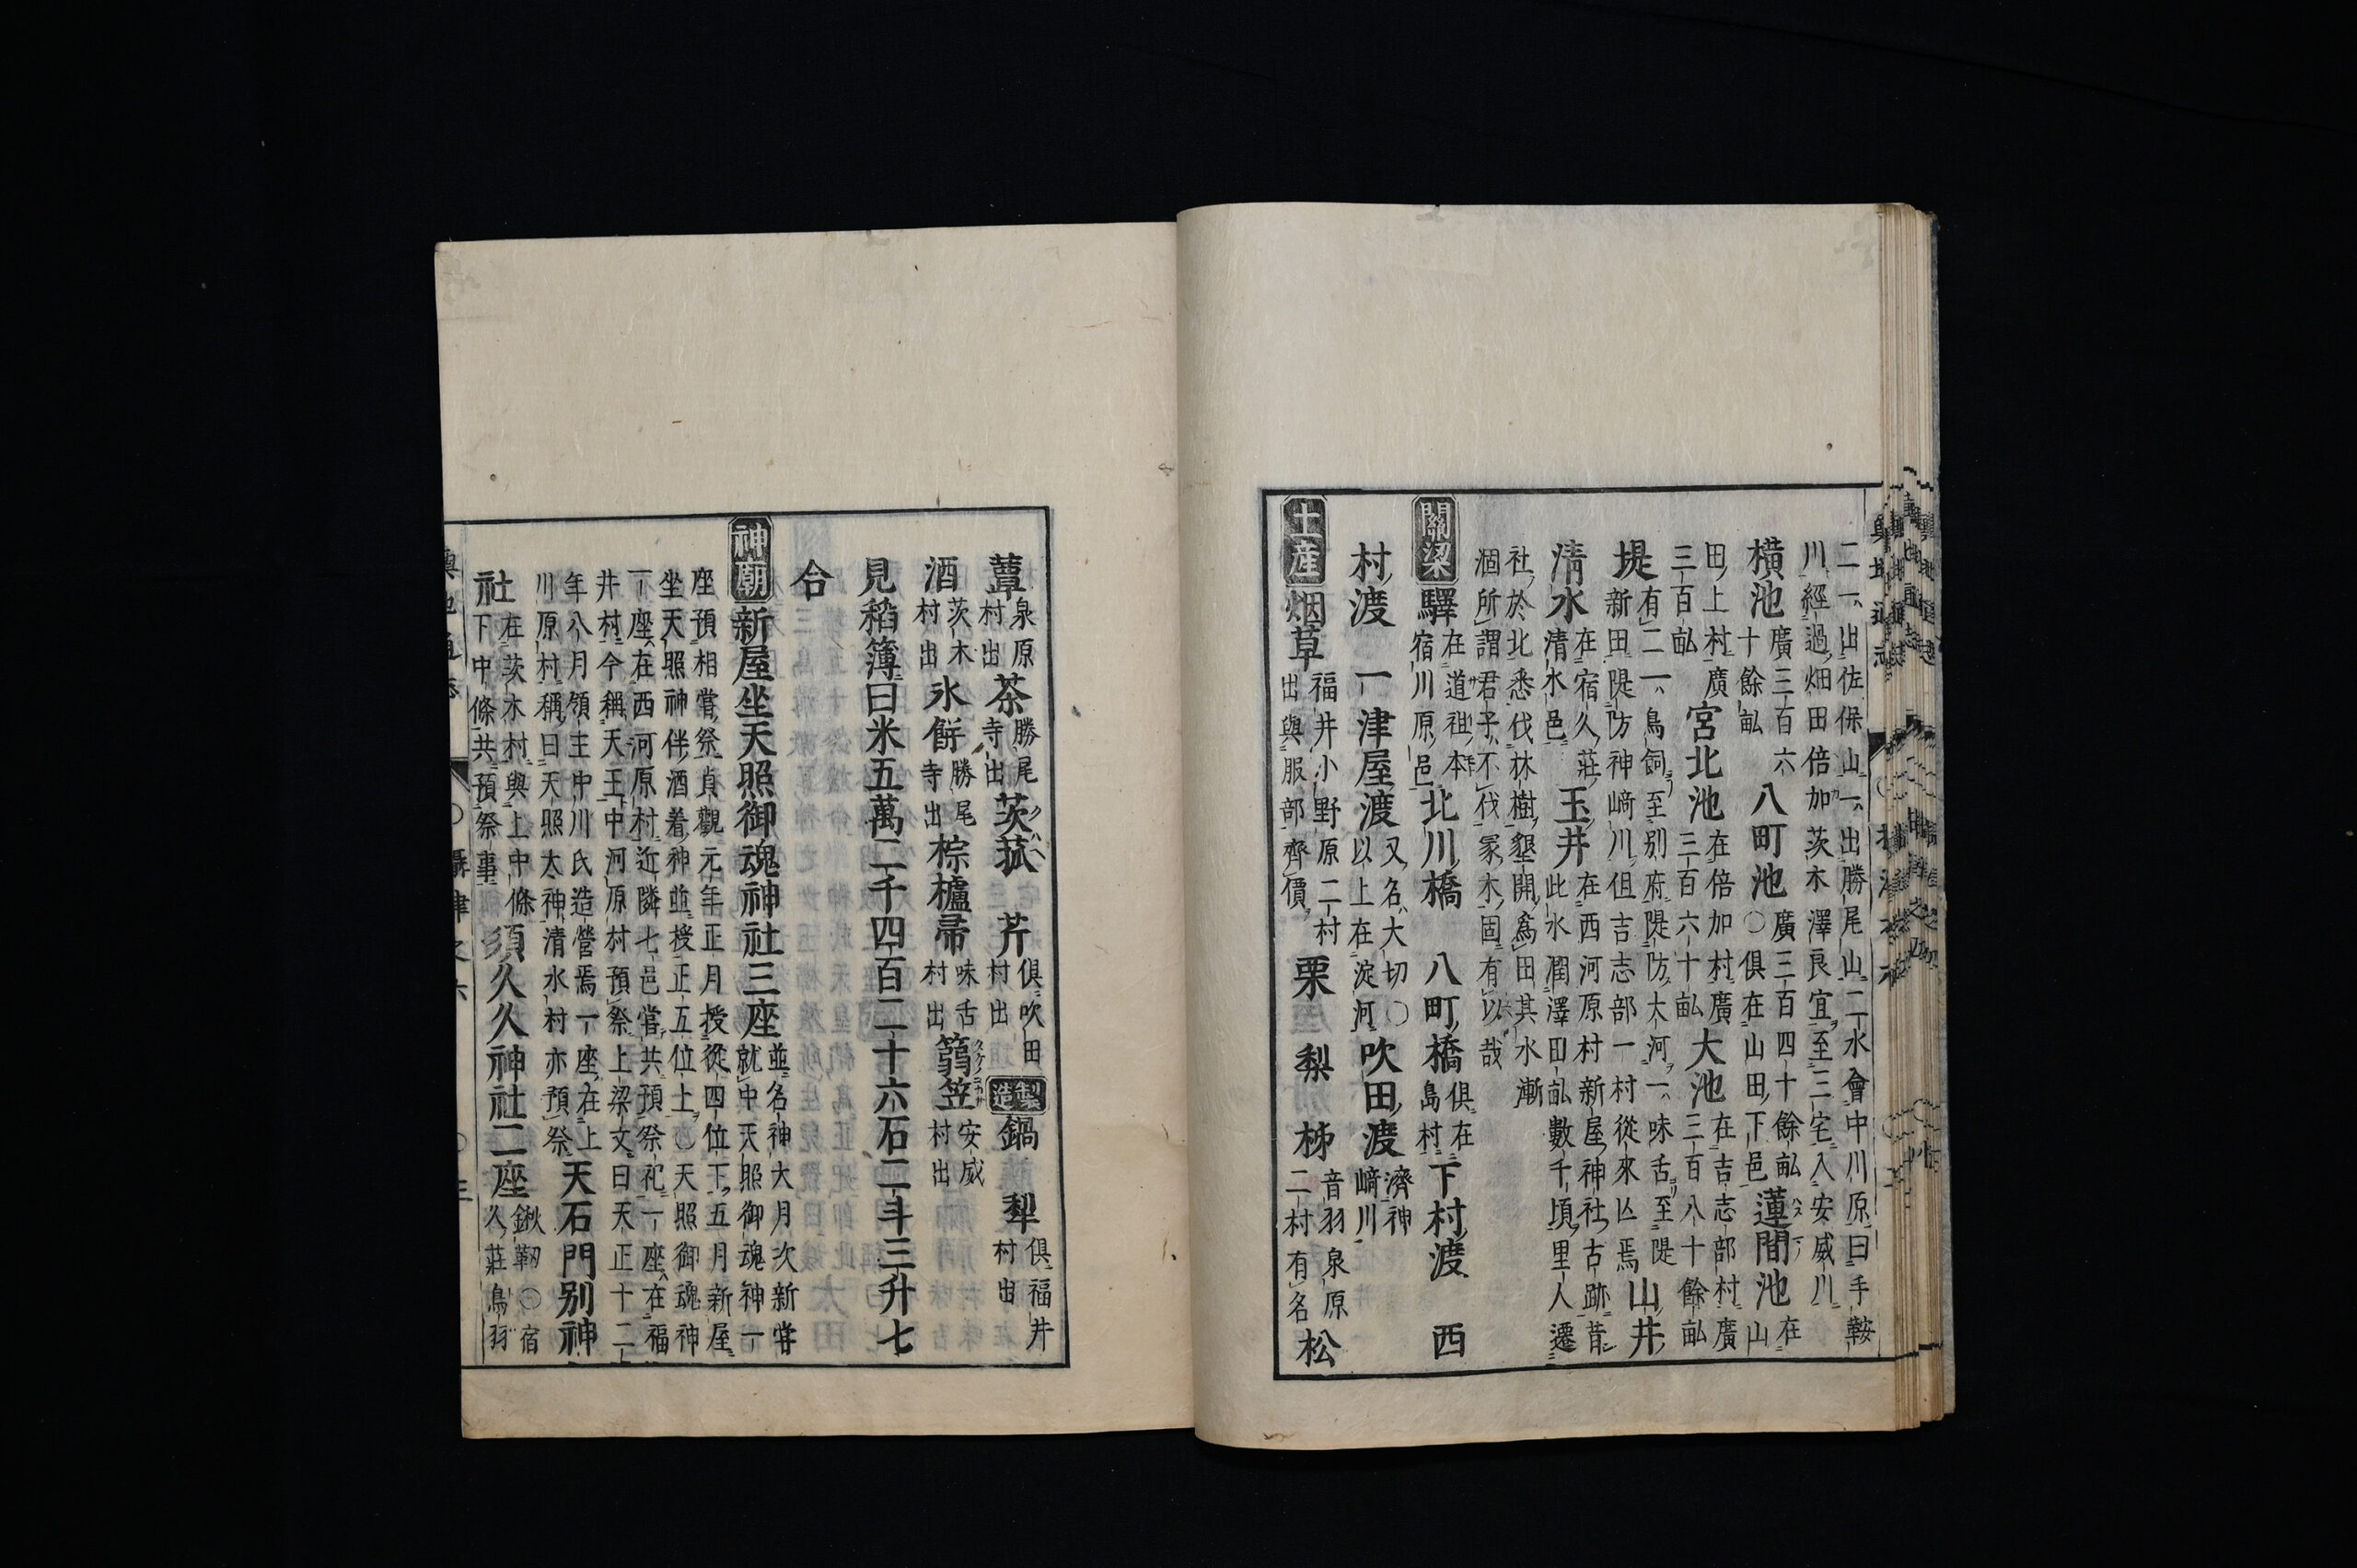 二一出佐保山一出勝尾山二水會中川原曰手鞍
川經過畑田倍加茨木澤良宜至三宅入安威川
橫池 廣三百六 十餘畝 八町池 廣三百四十餘畝 〇俱在山田下邑 蓮間池 在 山
田上村廣 三百畝 宮北池 在倍加村廣 三百六十畝 大池 在吉志部村廣 三百八十餘畝
堤 有二一鳥飼至别府隄防大河一味舌至隄 新田隄防神﨑川但吉志部一村從來亾焉 山井
清水 在宿久莊 清水邑 玉井 在西河原村新屋神社古跡昔 此水潤澤田畝數千頃里人遷
社於北悉伐林樹墾開爲田其水漸
涸所謂君子不伐冢木固有以哉
關梁 驛 在道祖本 宿川原邑 北川橋 八町橋 俱在 島村 下村渡 西
村渡 一津屋渡 又名大切〇 以上在淀河 吹田渡 濟神 﨑川
土產 烟草 福井小野原二村 出與服部齊價 栗 梨 柹 音羽泉原 二村有名 松
蕈 泉原 村出 茶 勝尾 寺出 茨菰 芹 俱吹田 村出 製造 鍋 犁 俱福井 村出
酒 茨木 村出 氷餅 勝尾 寺出 棕櫨帚 味舌 村出 篛笠 安威 村出
見稻簿曰米五萬二千四百二十六石二斗三升七
合
神廟 新屋坐天照御魂神社三座 並名神大月次新嘗 就中天照御魂神一
座預相嘗祭貞觀元年正月授從四位下五月新屋
坐天照神伴酒着神並授正五位上〇天照御魂神
一座在西河原村近隣七邑嘗共預祭祀一座在福
井村今稱天王中河原村預祭上梁文曰天正十二
年八月領主中川氏造營焉一座在上 川原村稱曰天照太神清水村亦預祭 天石門别神
社 在茨木村與上中條 下中條共預祭事 須久久神社二座 鍬靱〇宿 久莊鳥羽